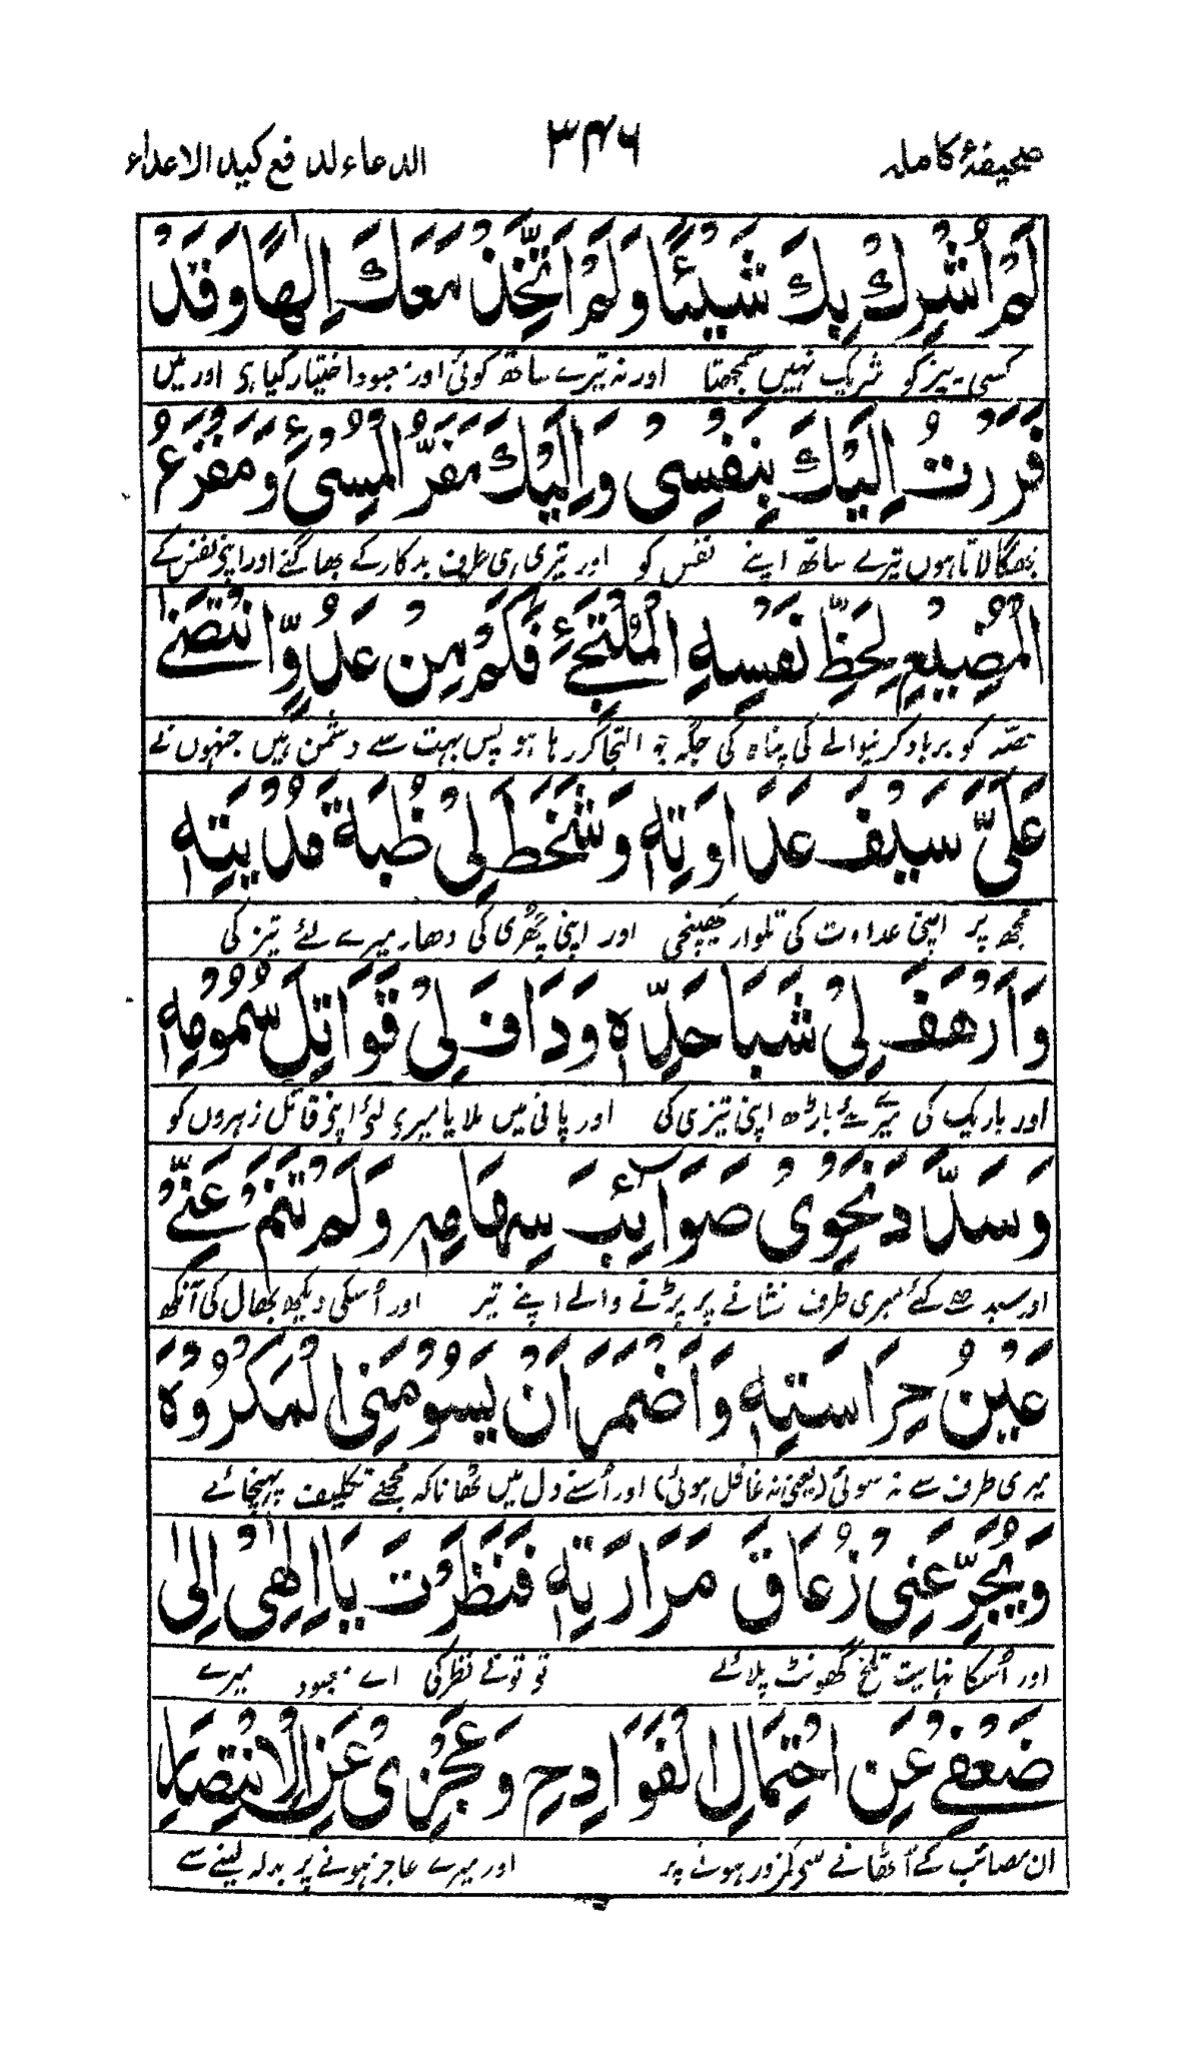 صحیفۂ کاملہ ۳۴۶ الدعاء لدفع کید الاعداء
لَمْ اُشْرِكْ بِكَ شَيْئًا وَلَمْ اَتَّخِذْ مَعَكَ اِلٰهًا وَقَدْ
کسی چیز کو شریک نہیں سمجھتا اور نہ تیرے ساتھ کوئی اور معبود اختیار کیا ہے اور میں
فَرَرْتُ اِلَيْكَ بِنَفْسِىْ وَاِلَيْكَ مَفَرُّ الْمُسِىْءِ وَمَفْزَعُ
بھگا لاتا ہوں تیرے ساتھ اپنے نفس کو اور تیری ہی طرف بدکار کے بھاگنے اور اپنی نفس کے
الْمُضَيِّعِ لِحَظِّ نَفْسِهِ الْمُلْتَجِئِ فَكَمْ مِنْ عَدُوٍّ انْتَضٰے
حصّہ کو برباد کرنیوالے کی پناہ کی جگہ جو التجا کر رہا ہو پس بہت سے دشمن ہیں جنہوں نے
عَلَىَّ سَيْفَ عَدَاوَتِهٖ وَشَحَطَ لِىْ ظُبَةَ مُدْيَتِهٖ
مجھ پر اپنی عداوت کی تلوار کھینچی اور اپنی چھری کی دھار میرے لئے تیز کی
وَاَرْهَفَ لِىْ شَبَا حَدِّهٖ وَدَافَ لِىْ قَوَاتِلَ سُمُوْمِهٖ
اور باریک کی میرے لئے باڑھ اپنی تیزی کی اور پانی میں ملایا میری لئے اپنی قاتل زہروں کو
وَسَدَّدَ نَحْوِىْ صَوَآئِبَ سِهَامِهٖ وَلَمْ تَنَمْ عَنِّىْ
اور سیدھے کئے میری طرف نشانے پر پڑنے والے اپنے تیر اور اُسکی دیکھ بھال کی آنکھ
عَيْنُ حِرَاسَتِهٖ وَاَضْمَرَ اَنْ يَسُوْمَنِى الْمَكْرُوْهَ
میری طرف سے نہ سوئی (یعنی نہ غافل ہوئی) اور اُسنے دل میں ٹھانا کہ مجھے تکلیف پہنچائے
وَيُجَرِّعَنِىْ زُعَاقَ مَرَارَتِهٖ فَنَظَرْتَ يَا اِلٰهِىْ اِلٰى
اور اُسکا نہایت تلخ گھونٹ پلائے تو تونے نظر کی اے معبود میرے
ضَعْفِىْ عَنِ احْتِمَالِ الْفَوَادِحِ وَعَجْزِىْ عَنِ الْاِنْتِصَارِ
ان مصائب کے اُٹھانے سے کمزور ہونے پر اور میرے عاجز ہونے پر بدلہ لینے سے